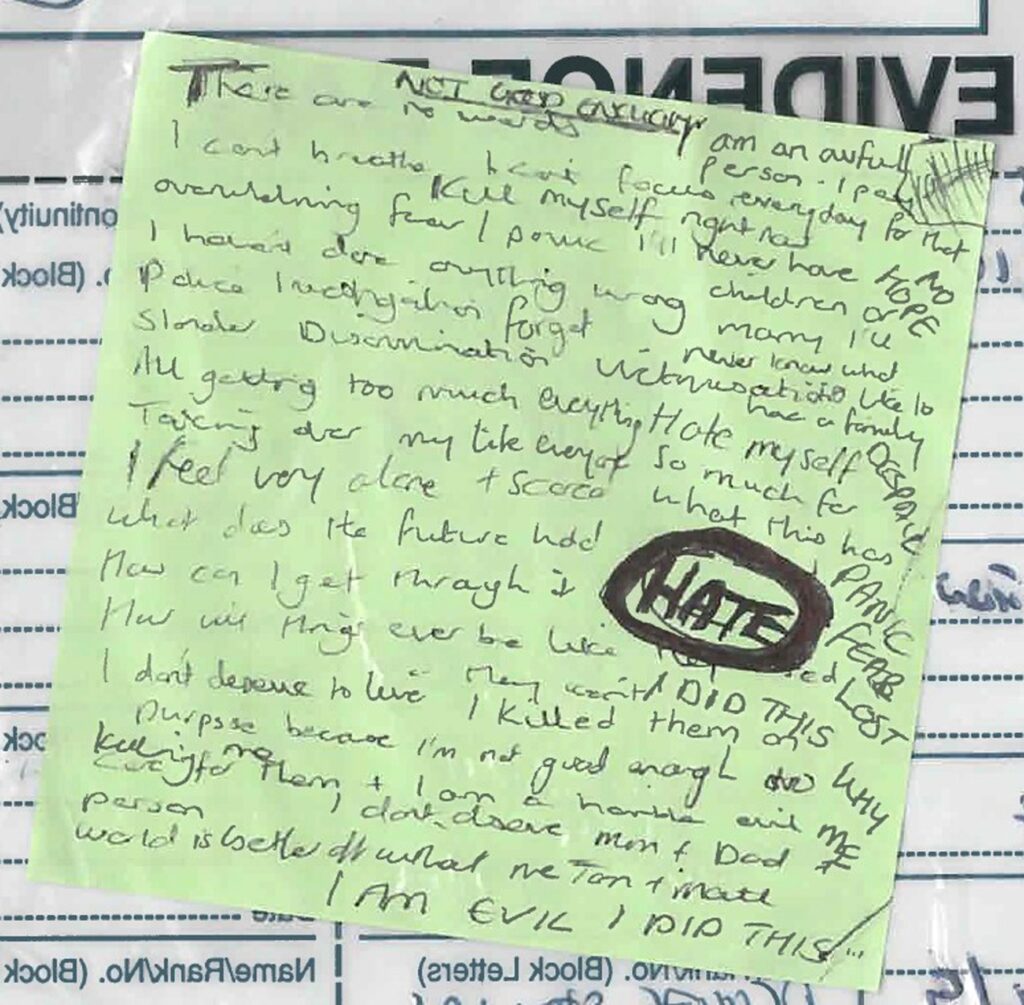 EVIDENCE
NOT GOOD ENOUGH
There are no words
I am an awful person. I pay everyday for that
I cant breathe I cant focus
Kill myself right now
overwhelming fear / panic I'll never have children or marry I'll never know what its like to have a family
NO HOPE
I haven't done anything wrong
Police Investigation forget
Slander Discrimination Victimisation
All getting too much everything
Hate myself so much for what this has
DESPAIR
Taking over my life everyday
I feel very alone + scared
what does the future hold
PANIC
HATE
How can I get through it
FEAR
How will things ever be like they used
LOST
I don't deserve to live
They went
I DID THIS
I killed them on purpose because I'm not good enough to care for them + I am a horrible evil person
WHY ME
killing me
I don't deserve mum + Dad
world is better off without me Tom + Matt
I AM EVIL I DID THIS
Name/Rank/No. (Block
Rank/No. (Block Letters)